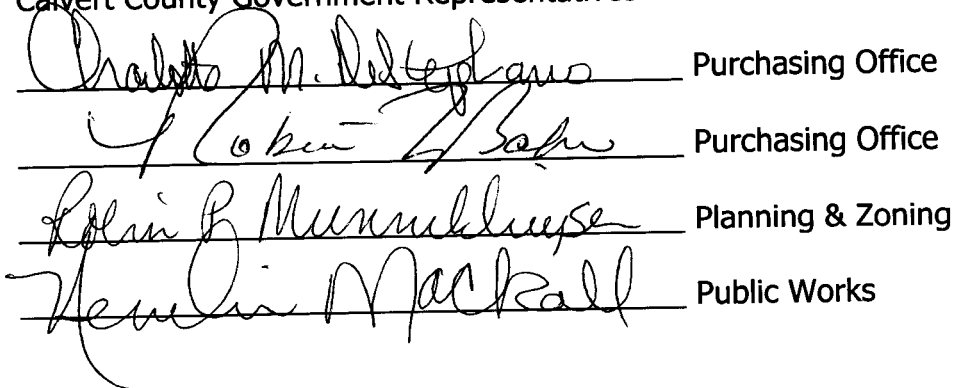 Calvert County Government Representatives
Charlotte M. Purchasing Office
Robin Purchasing Office
Robin R Munnikhuysen Planning & Zoning
Mackall Public Works